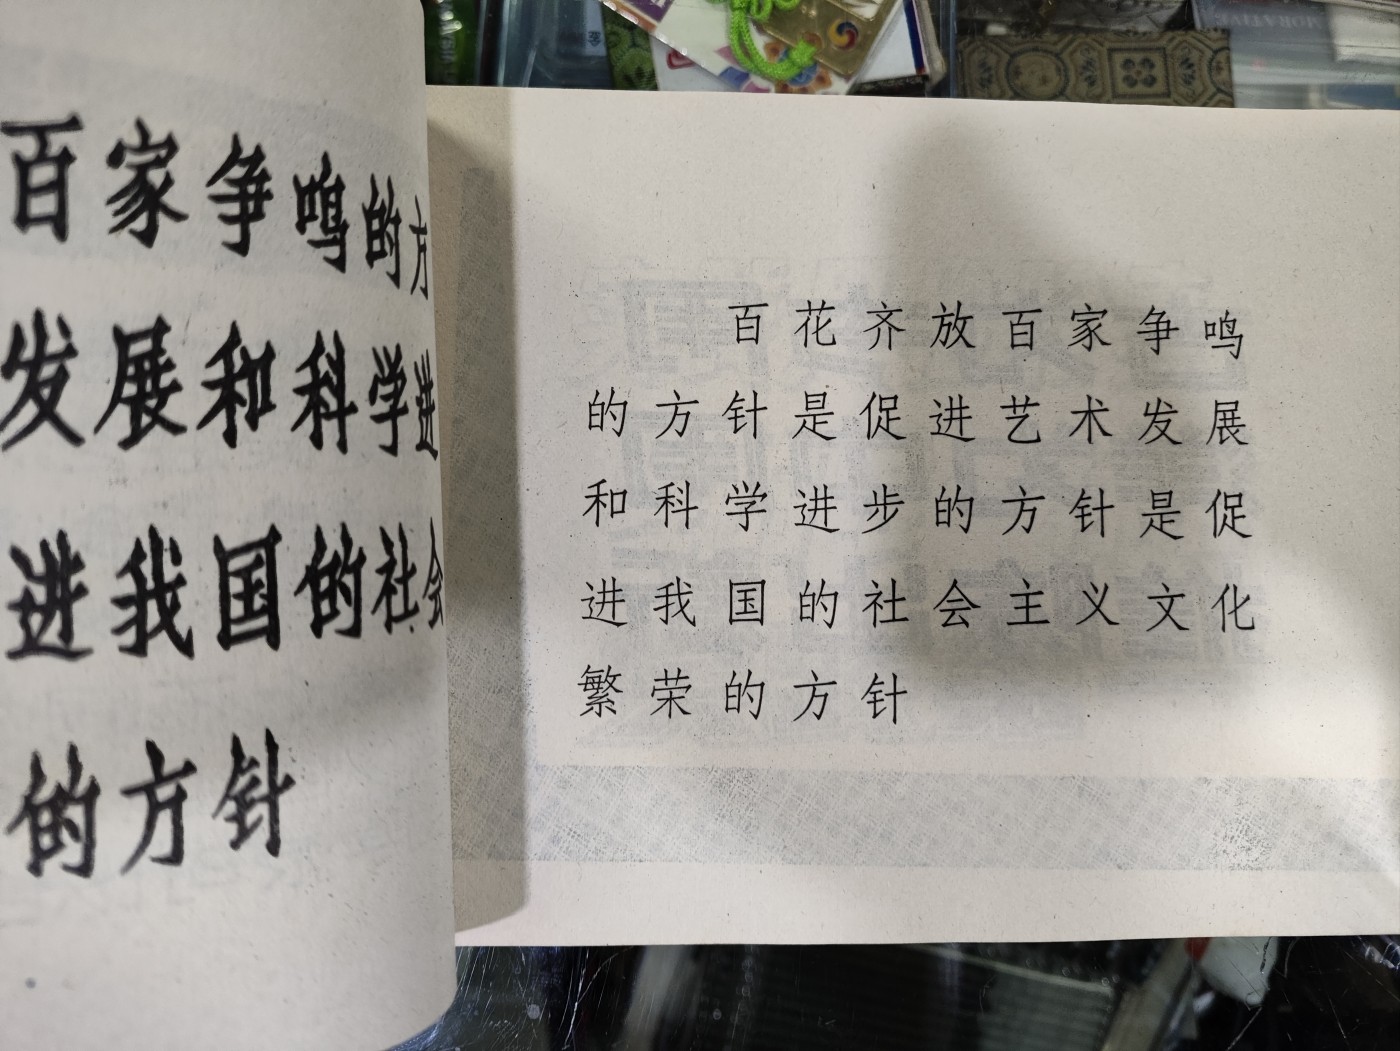 百家争鸣的方
发展和科学进
进我国的社会
的方针
百花齐放百家争鸣
的方针是促进艺术发展
和科学进步的方针是促
进我国的社会主义文化
繁荣的方针